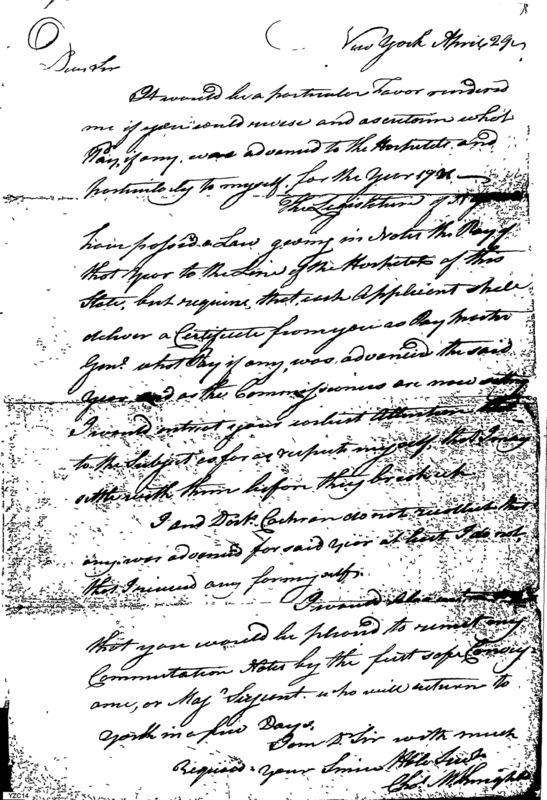 New York April 29
Dear Sir
It would be a particular Favor rendered
me if you would revise and ascertain what
Pay, if any, was advanced to the Hospitals and
particularly to myself for the Year 17
The Legislature of
have passed a Law giving in Notes the Pay of
that Year to the Line of the Hospitals of this
State, but require, that each Applicant shall
deliver a Certificate from you as Pay Master
Genl. what Pay if any, was advanced the said
Year, and as the Commissioners are now
I would intreat your earliest Attention
to the Subject as far as respects myself, that I may
settle with them before they break up
I and Doctr. Cochran do not recollect that
any was advanced for said Year at least I do not
that I received any for myself.
I would also
that you would be pleased to remit my
Commutation Notes by the first safe Convey-
ance, or Majr. Sergeant who will return to
York in a few Days.
I am Dr. Sir with much
Respect your Sincere Hble Servt.
YZC14